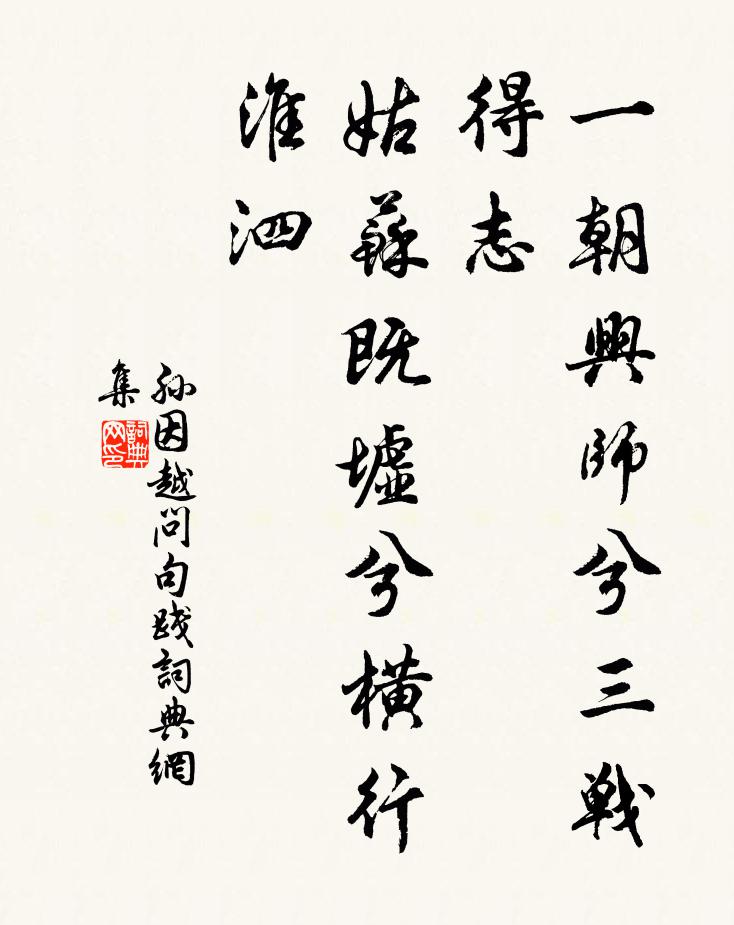 一朝興師兮三戦
得志
姑蘇既墟兮橫行
淮泗
孫因越問句踐詞典網
集
詞典
网印